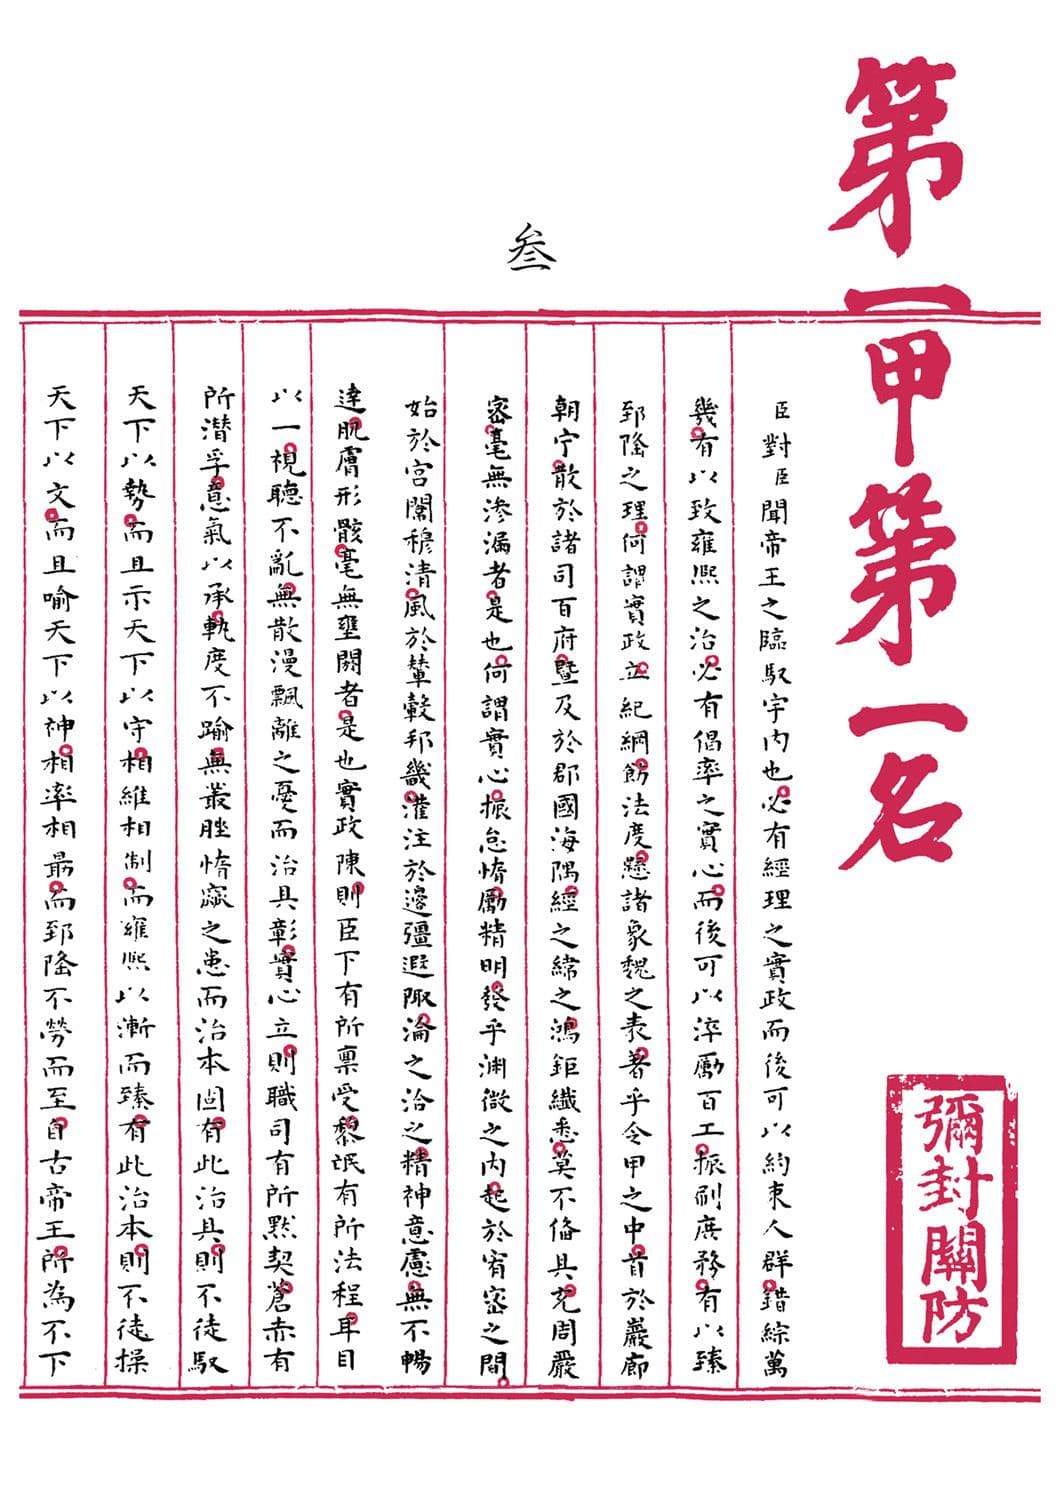 第一甲第一名
彌封關防
叁
臣對臣聞帝王之臨馭宇內也必有經理之實政而後可以約束人群錯綜萬
幾有以致雍熙之治必有倡率之實心而後可以淬勵百工振刷庶務有以臻
郅隆之理何謂實政立紀綱飭法度懸諸象魏之表著乎令甲之中首於巖廊
朝宁散於諸司百府暨及於郡國海隅經之緯之鴻鉅纖悉莫不備具充周嚴
密毫無滲漏者是也何謂實心振怠惰勵精明發乎淵微之內起於宥密之間
始於宮閫穆清風於輦轂邦畿灌注於邊疆遐陬淪之洽之精神意慮無不暢
達肌膚形骸毫無壅閼者是也實政陳則臣下有所禀受黎氓有所法程耳目
以一視聽不亂無散漫飄離之憂而治具彰實心立則職司有所默契蒼赤有
所潛孚意氣以承軌度不踰無叢脞惰窳之患而治本固有此治具則不徒馭
天下以勢而且示天下以守相維相制而雍熙以漸而臻有此治本則不徒操
天下以文而且喻天下以神相率相勗而郅隆不勞而至自古帝王所為不下